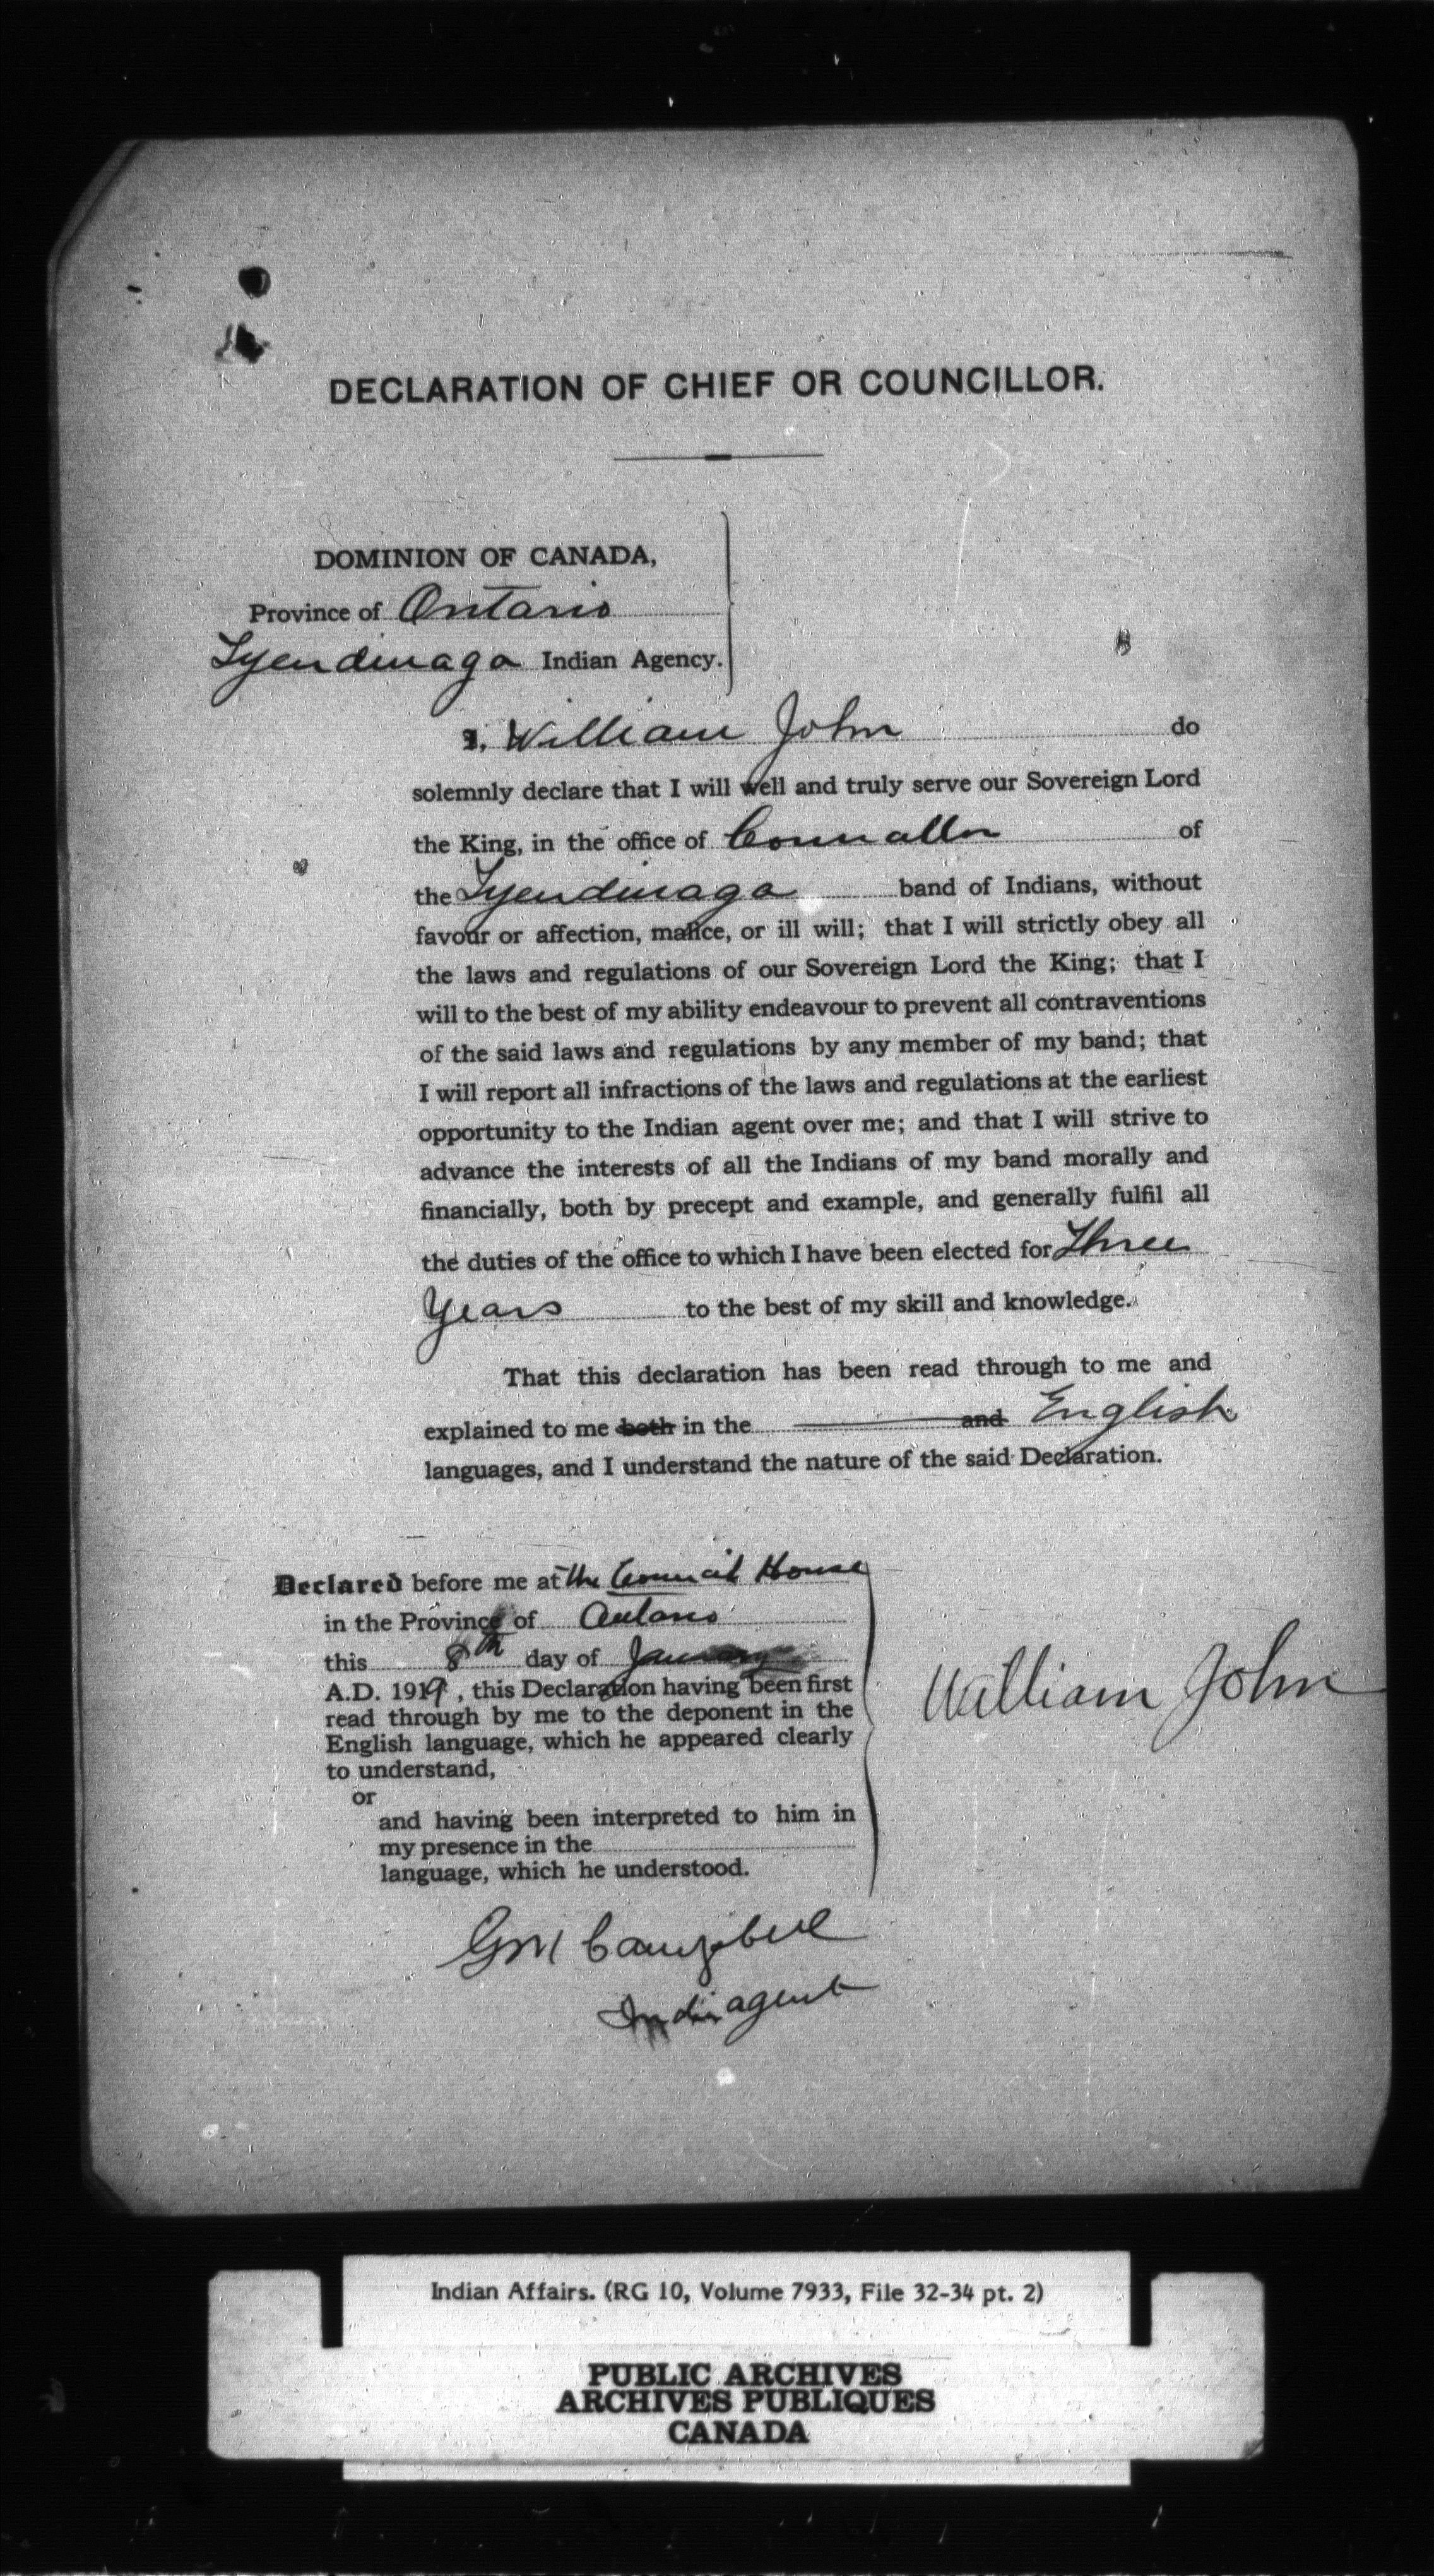 DECLARATION OF CHIEF OR COUNCILLOR.
DOMINION OF CANADA,
Province of Ontario
Tyendinaga Indian Agency.
I, William John do
solemnly declare that I will well and truly serve our Sovereign Lord
the King, in the office of Councallor of
the Tyendinaga band of Indians, without
favour or affection, malice, or ill will; that I will strictly obey all
the laws and regulations of our Sovereign Lord the King; that I
will to the best of my ability endeavour to prevent all contraventions
of the said laws and regulations by any member of my band; that
I will report all infractions of the laws and regulations at the earliest
opportunity to the Indian agent over me; and that I will strive to
advance the interests of all the Indians of my band morally and
financially, both by precept and example, and generally fulfil all
the duties of the office to which I have been elected for Three
Years to the best of my skill and knowledge.
That this declaration has been read through to me and
explained to me both in the and English
languages, and I understand the nature of the said Declaration.
Declared before me at the Council House
in the Province of Ontario
this 8th day of January
A.D. 1919, this Declaration having been first
read through by me to the deponent in the
English language, which he appeared clearly
to understand,
or
and having been interpreted to him in
my presence in the
language, which he understood.
William John
GM Campbell
Indin agent
Indian Affairs. (RG 10, Volume 7933, File 32-34 pt. 2)
PUBLIC ARCHIVES
ARCHIVES PUBLIQUES
CANADA